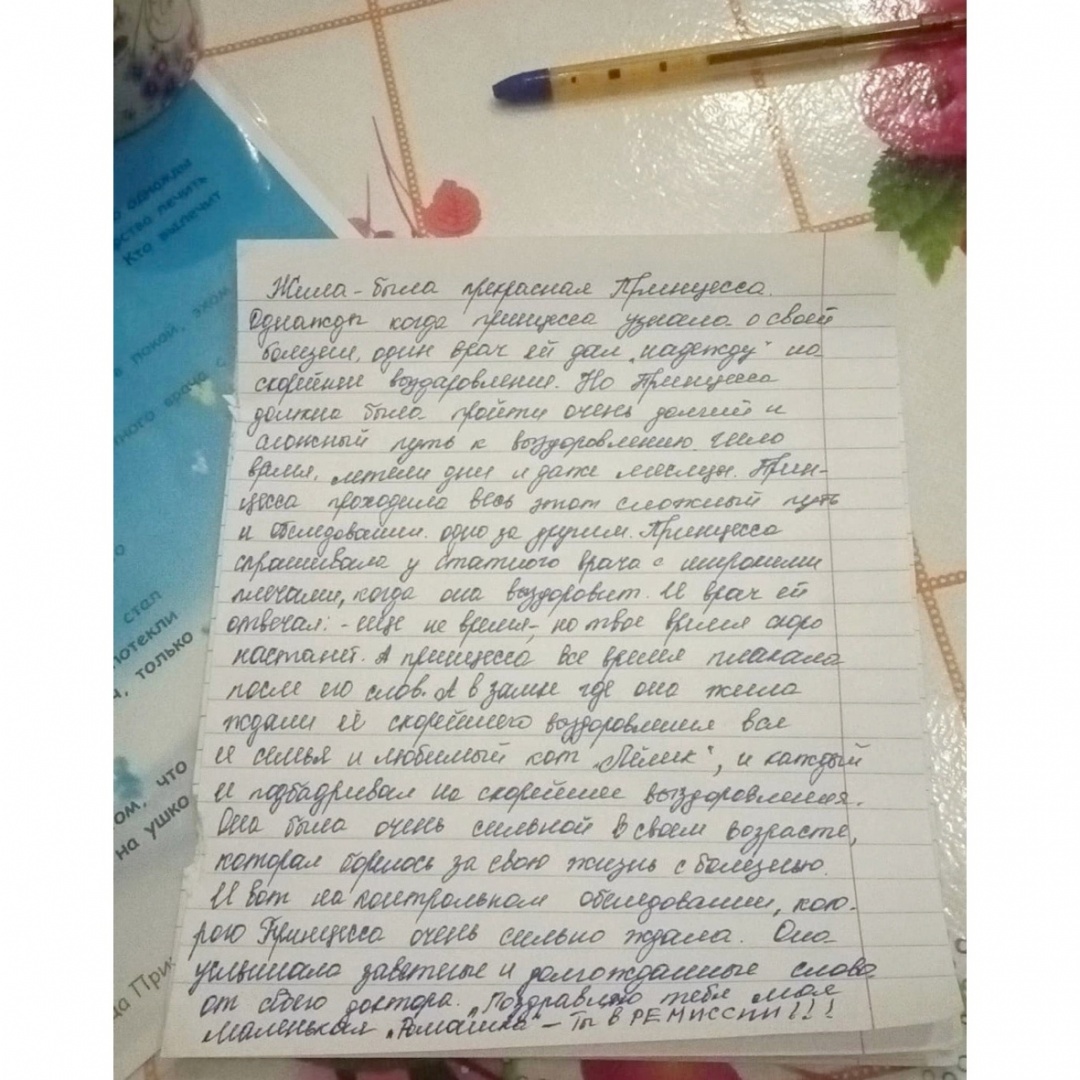 о однажды
рство лечить
Кто вылечит
покой,
ного врача с
о
стал
потекли
, только
ом, что
на ушко
да При
Жила-была прекрасная Принцесса.
Однажды когда принцесса узнала о своей
болезни, один врач ей дал „надежду" на
скорейшее воздаровление. Но Принцесса
должна была пройти очень долгий и
сложный путь к выздоровлению. Шло
время, летели дни и даже месяцы. Прин-
цесса проходила весь этот сложный путь
и обследовании одно за другим. Принцесса
спрашивала у статного врача с широкими
плечами, когда она выздоровит. И врач ей
отвечал: - еще не время, но твое время скоро
настанет. А принцесса все время плакала
после его слов. А в замке где она жила
ждали её скорейшего выздоровления вся
её семья и любимый кот „Лёлик", и каждый
её подбадривал на скорейшее выздоровления.
Она была очень сильной в своем возрасте,
которая боролось за свою жизнь с болезнью.
И вот на контрольном обследовании, кот-
рою Принцесса очень сильно ждала. Она
услышала заветные и долгожданные слова
от своего доктора. „Поздравляю тебя моя
маленькая „Ромашка" - Ты в РЕМИССИИ!!!